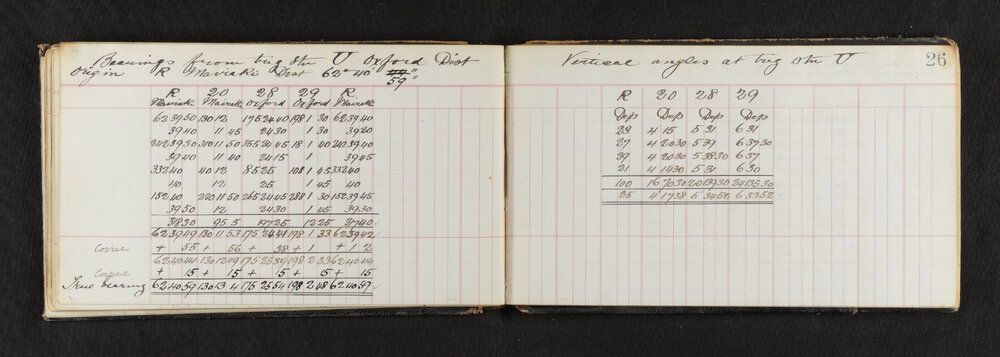 Bearings from trig stn U Oxford Dist
Origin R Maviaki Dist 62° 40' 59"
R 20 28 29 R
Oxford Oxford
62 39 50 130 12 175 24 40 198 1 30 62 39 40
39 40 11 45 24 30 1 30 39 20
242 39 30 310 11 50 355 24 45 18 1 40 242 39 40
39 40 11 40 24 15 1 39 45
332 40 40 12 85 25 108 1 45 332 40
40 12 25 1 45 40
152 40 220 11 50 265 24 45 288 1 30 152 39 45
39 50 12 24 30 1 45 39 30
38 30 95 5 197 25 12 25 37 40
62 39 49 130 11 53 175 24 41 198 1 33 62 39 42
Correc + 55 + 56 + 58 + 1 + 1 2
62 40 44 130 12 49 175 25 39 198 2 33 62 40 44
Correc + 15 + 15 + 15 + 15 + 15
True bearing 62 40 59 130 13 4 175 25 54 198 2 48 62 40 59
Vertical angles at trig stn U 26
R 20 28 29
Dep Dep Dep Dep
23 4 15 5 31 6 31
27 4 20 30 5 39 6 37 30
29 4 20 30 5 38 30 6 37
21 4 14 30 5 31 6 30
100 16 70 30 20 139 30 24 135 30
25 4 17 38 5 34 52 6 33 52